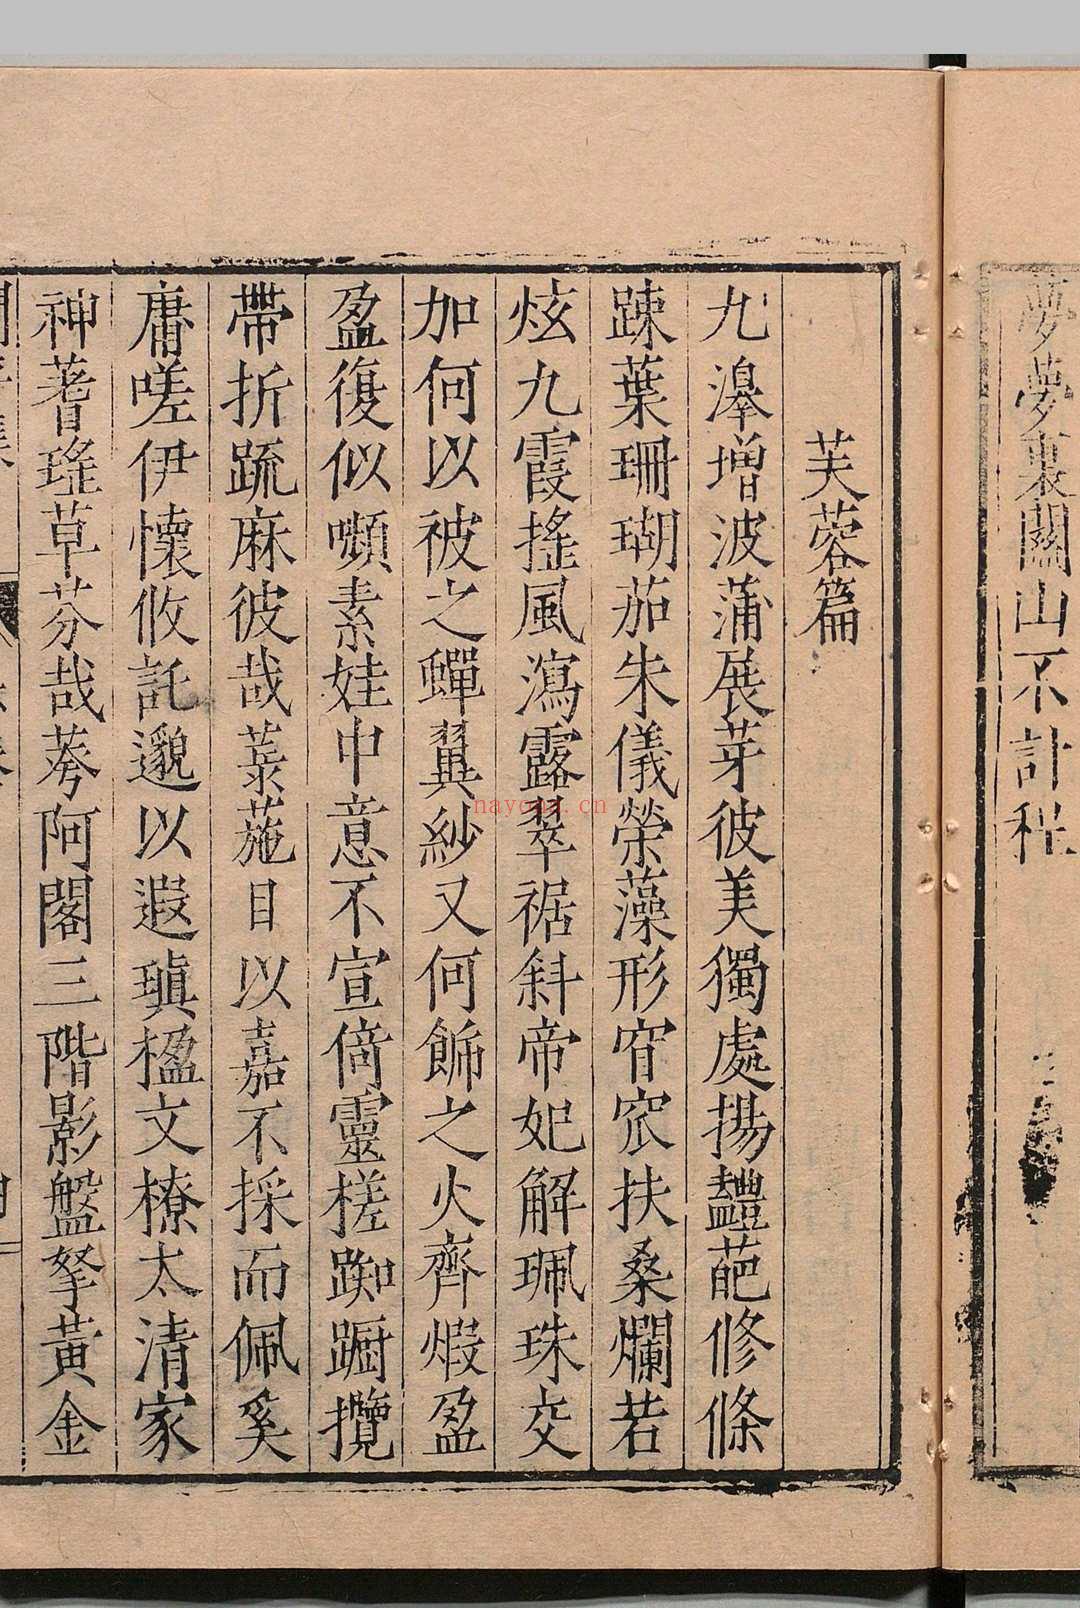 夢夢裏關山不計程
芙蓉篇
九澤增波蒲展芽彼美獨處揚豔葩修條
踈葉珊瑚茄朱儀榮藻形窅窊扶桑爛若
炫九霞搖風瀉露翠裾斜帝妃解珮珠交
加何以被之蟬翼紗又何飾之火齊煆盈
盈復似嚬素娃中意不宣倚靈槎踟躕攬
帶折疏麻彼哉菉葹目以嘉不採而佩奚
庸嗟伊懷攸託邈以遐瑱楹文橑太清家
神蓍瑤草芬哉荂阿閣三階影盤拏黃金
nayona.cn